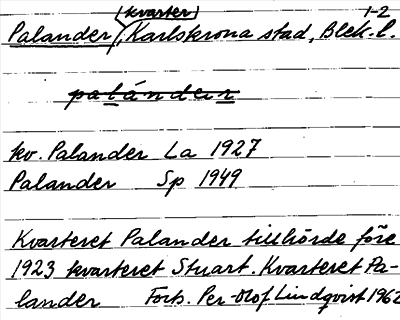 1-2
(kvarter)
Palander, Karlskrona stad, Blek. l.
palánder
kv. Palander La 1927
Palander Sp 1949
Kvarteret Palander tillhörde före
1923 kvarteret Stuart. Kvarteret Pa-
lander Forts. Per-Olof Lindqvist 1962